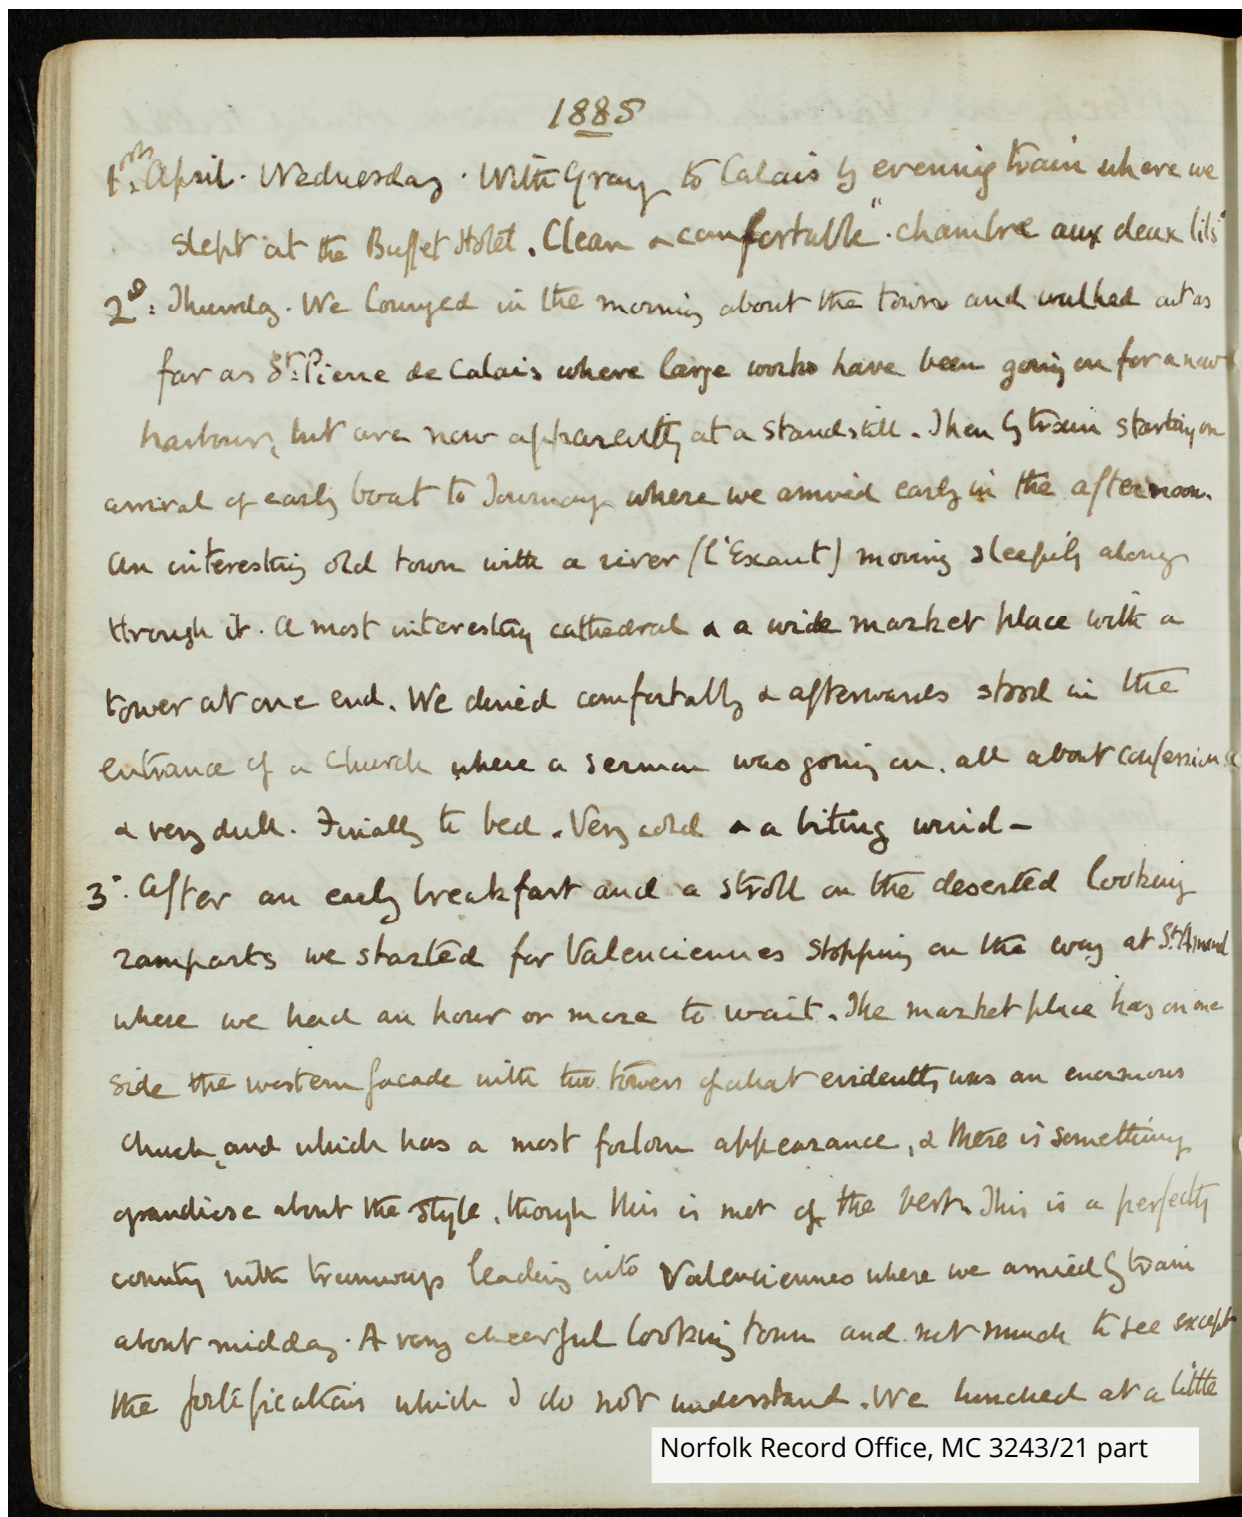 1885
1st April. Wednesday. With Gray to Calais by evening train where we
slept at the Buffet Hotel. Clean & comfortable "chambre aux deux lits"
2nd: Thursday. We lounged in the morning about the town and walked out as
far as St: Pierre de Calais where large works have been going on for a new
harbour, but are now apparently at a standstill. Then by train starting on
arrival of early boat to Tournay where we arrived early in the afternoon.
An interesting old town with a river (l'Exaut) moving sleepily along
through it. A most interesting cathedral & a wide market place with a
tower at one end. We dined comfortably & afterwards stood in the
entrance of a church where a sermon was going on. all about confession
& very dull. Finally to bed. Very cold & a biting wind –
3. After an early breakfast and a stroll on the deserted looking
ramparts we started for Valenciennes stopping on the way at St. Amand
where we had an hour or more to wait. The market place has on one
side the western facade with two towers of what evidently was an enormous
church, and which has a most forlorn appearance, & there is something
grandiose about the style, though this is not of the best. This is a perfectly
country with tramways leading into Valenciennes where we arrived by train
about midday. A very cheerful looking town and not much to see except
the fortifications which I do not understand. We lunched at a little
Norfolk Record Office, MC 3243/21 part